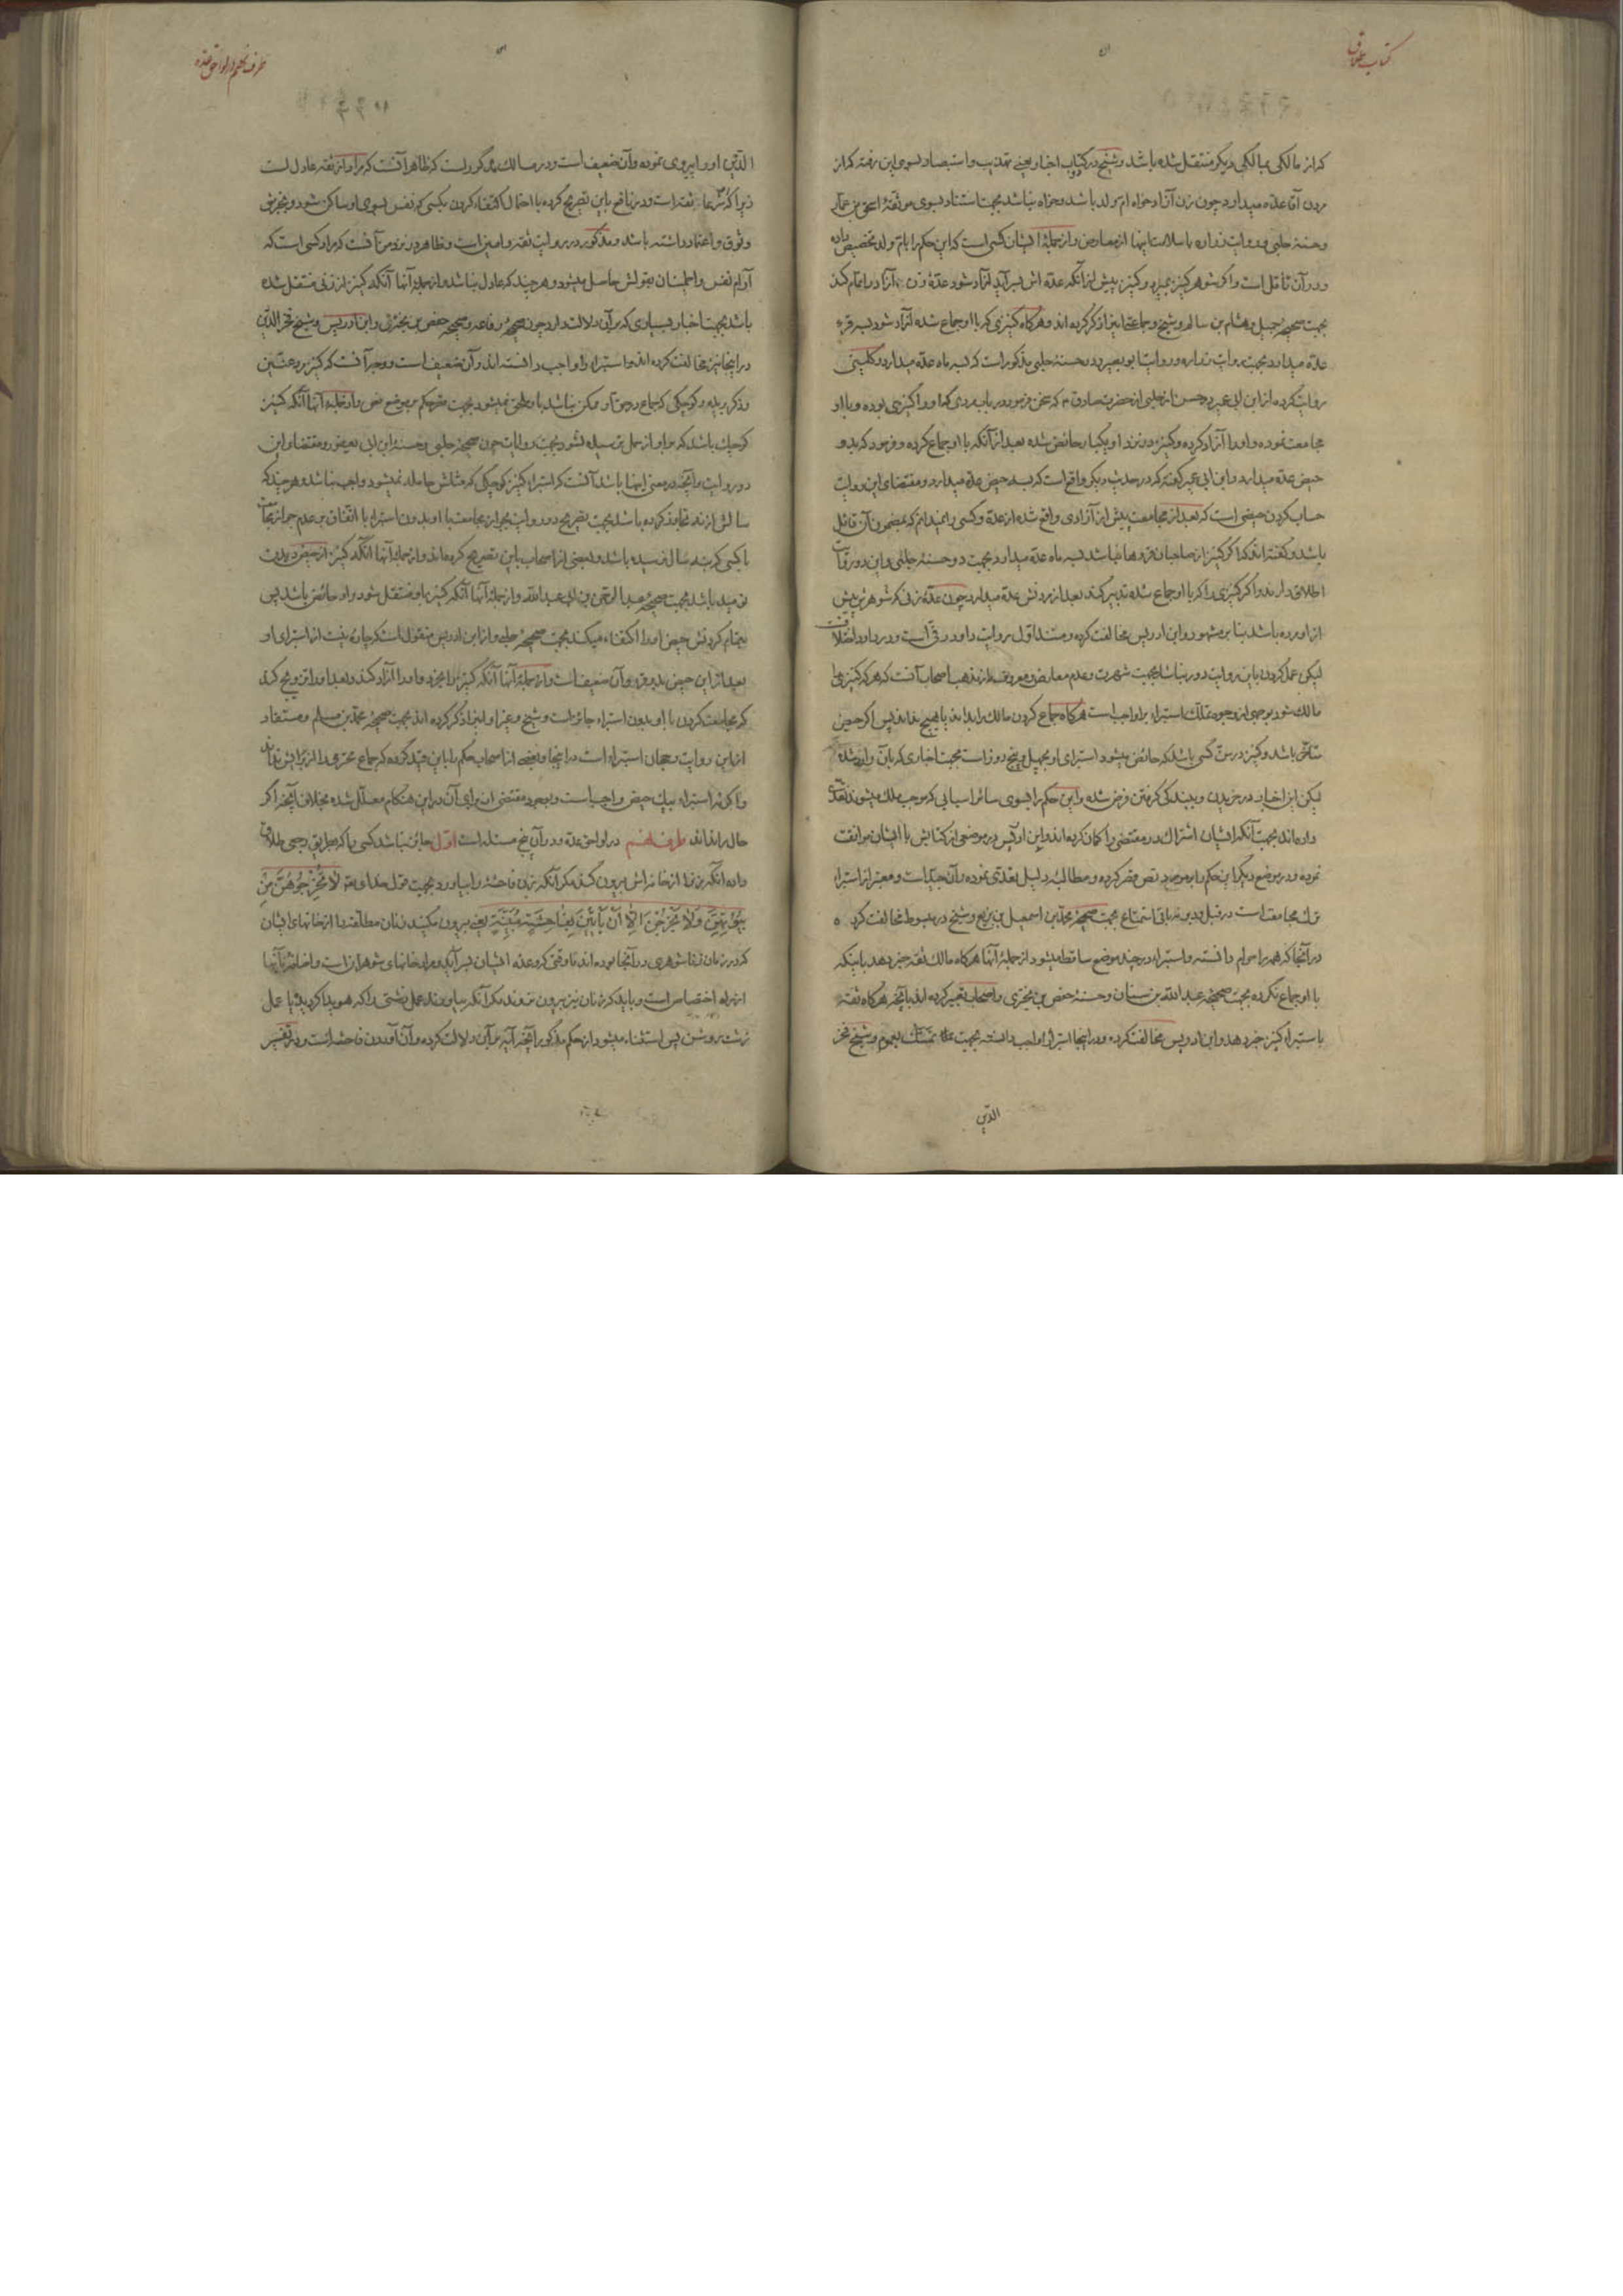 کتاب طلاق
که از مالکی بمالکی دیگر منتقل شده باشد و شیخ در کتاب اخبار یعنی تهذیب و استبصار بسوی این رفته که از
مردن آقا عده میدارد چون زن آزاد خواه ام ولد باشد و خواه نباشد بجهت استناد بسوی موثقهٔ اسحق بن عمار
و حسنهٔ حلبی و روایت زراره با سلامت اینها از معارض و از جملهٔ ایشان کسی است که این حکم را بام ولد تخصیص داده
و در آن تأمل است و اگر شوهر کنیز بمیرد و کنیز پیش از آنکه عده اش بسر آید آزاد شود عدهٔ زن آزاد را تمام کند
بجهت صحیحهٔ جمیل و هشام بن سالم و شیخ و جماعتی این را ذکر کرده اند و هرگاه کنیزی که با او جماع شده آزاد شود سه قرء
عده میدارد بجهت روایت زراره و روایت ابوبصیر و در حسنهٔ حلبی مذکور است که سه ماه عده میدارد و کلینی
روایت کرده از ابن ابی عمیر در حسن از حلبی از حضرت صادق ع که سخن فرمود در باب مردی که او را کنیزی بوده و با او
مجامعت نموده و او را آزاد کرده و کنیز در نزد او یکبار حائض شده بعد از آنکه با او جماع کرده و فرمود که بدو
حیض عده میدارد و ابن ابی عمیر گفته که در حدیث دیگر واقع است که بسه حیض عده میدارد و مقتضای این روایت
حساب کردن حیضی است که بعد از مجامعت پیش از آزادی واقع شده از عده و کسی را نمیدانم که بمضمون آن قائل
باشد و گفته اند که اگر کنیز از صاحبان قروها نباشد سه ماه عده میدارد بجهت دو حسنهٔ حلبی و این دو روایت
اطلاق دارند و اگر کنیزی را که با او جماع شده تدبیر کند بعد از مردنش عده میدارد چون عدهٔ زنی که شوهرش پیش
از او مرده باشد بنا بر مشهور و ابن ادریس مخالفت کرده و مستند اول روایت داود رقی است و در داود اختلافست
لیکن عمل کردن باین روایت دور نباشد بجهت شهرت و عدم معارض و معروف از مذهب اصحاب آنست که هر که کنیزی را
مالک شود بوجهی از وجوه تملک استبراء بر او واجب است هرگاه جماع کردن مالک را بداند یا هیچ نداند پس اگر حیض
متأخر باشد و کنیز در سن کسی باشد که حائض میشود استبرای او بچهل و پنج روز است بجهت اخباری که بآن وارد شده
لیکن این اخبار در خریدن و ببندگی گرفتن فرض شده و این حکم را بسوی سائر اسبابی که موجب ملک میشوند تعدی
داده اند بجهت آنکه ایشان اشتراک در مقتضی را گمان کرده اند و ابن ادریس در موضعی از کتابش با ایشان موافقت
نموده و در موضع دیگر این حکم را بر مورد نص قصر کرده و مطالبهٔ دلیل تعدی نموده و آن جید است و معتبر از استبراء
ترک مجامعت است در قبل و دبر نه باقی استمتاع بجهت صحیحهٔ محمد بن اسمعیل بن بزیع و شیخ در مبسوط مخالفت کرده
در آنجا که همه را حرام دانسته و استبراء در چند موضع ساقط میشود از جملهٔ آنها هرگاه مالک ثقه خبر دهد باینکه
با او جماع نکرده بجهت صحیحهٔ عبد الله بن سنان و حسنهٔ حفص بن بختری و اصحاب تعبیر کرده اند بآنچه هرگاه ثقه
باستبراء کنیز خبر دهد و ابن ادریس مخالفت کرده و در اینجا استبراء را واجب دانسته بجهت تمسک بعموم و شیخ فخر
الدین
طرف پنجم در لواحق عده
الدین او را پیروی نموده و آن ضعیف است و در مسالک مذکور است که ظاهر آنست که مراد از ثقه عادل است
زیرا که شرعا ثقه است و در نافع باین تصریح کرده با احتمال اکتفاء کردن بکسی که نفس بسوی او ساکن شود و بخبرش
وثوق و اعتماد داشته باشد و مذکور در روایت ثقه و امین است و ظاهر در نزد من آنست که مراد کسی است که
آرام نفس و اطمینان بقولش حاصل میشود و هر چند که عادل نباشد و از جملهٔ آنها آنکه کنیز از زنی منتقل شده
باشد بجهت اخبار بسیاری که بر آن دلالت دارد چون صحیحهٔ رفاعه و صحیحهٔ حفص بن بختری و ابن ادریس و شیخ فخر الدین
در اینجا نیز مخالفت کرده اند و استبراء را واجب دانسته اند و آن ضعیف است و وجه آنست که کنیز مرد عنین
و ذکر بریده و کوچکی که جماع در حق او ممکن نباشد باو ملحق نمیشود بجهت قصر حکم بر موضع نص و از جملهٔ آنها آنکه کنیز
کوچک باشد که بر او از حمل نرسیده نشود بجهت روایات چون صحیحهٔ حلبی و حسنهٔ ابن ابی یعفور و مقتضای این
دو روایت و آنچه در معنی اینها باشد آنست که استبراء کنیز کوچکی که مثلش حامله نمیشود واجب نباشد و هر چند که
سالش از نه تجاوز کرده باشد بجهت تصریح دو روایت بجواز مجامعت با او بدون استبراء با اتفاق بر عدم جواز مجامعت
با کسی که بنه سال نرسیده باشد و بعضی از اصحاب باین تصریح کرده اند و از جملهٔ آنها آنکه کنیز از حیض دیدن
نومید باشد بجهت صحیحهٔ عبد الرحمن بن ابی عبد الله و از جملهٔ آنها آنکه کنیز باو منتقل شود و او حائض باشد پس
بتمام کردنش حیض او را اکتفاء میکند بجهت صحیحهٔ حلبی و از ابن ادریس منقول است که چاره نیست از استبرای او
بعد از این حیض بدو قرء و آن ضعیف است و از جملهٔ آنها آنکه کنیز را بخرد و او را آزاد کند و بعد او را تزویج کند
که مجامعت کردن با او بدون استبراء جائز است و شیخ و غیر او این را ذکر کرده اند بجهت صحیحهٔ محمد بن مسلم و مستفاد
از این روایت رجحان استبراء است در اینجا و بعضی از اصحاب حکم را باین قید کرده که جماع محترمی را از برایش نداند
و اگرنه استبراء بیک حیض واجب است و بوجود مقتضی از برای آن در این هنگام معلل شده بخلاف آنچه اگر
حال را نداند طرف پنجم در لواحق عده و در آن پنج مسئله است اول جائز نباشد کسی را که بطریق رجعی طلاق
داده آنکه زن را از خانه اش بیرون کند مگر آنکه زن فاحشه را بیاورد بجهت قول خدا و تعه لا تُخْرِجُوهُنَّ مِنْ
بُيُوتِهِنَّ وَلا يَخْرُجْنَ اِلّا اَنْ يَأْتِينَ بِفاحِشَةٍ مُبَيِّنَةٍ یعنی بیرون مکنید زنان مطلقه را از خانهای ایشان
که در زمان زناشوهری در آنجا بوده اند تا وقتی که عدهٔ ایشان بسر آید و مراد خانهای شوهران است و اضافه بآنها
از راه اختصاص است و باید که زنان نیز بیرون نروند مگر آنکه بیاورند عمل زشتی را که هویدا کرده شده یا عمل
زشت روشن پس استثناء میشود از حکم مذکور آنچه آیه بر آن دلالت کرده و آن آوردن فاحشه است و در تفسیر